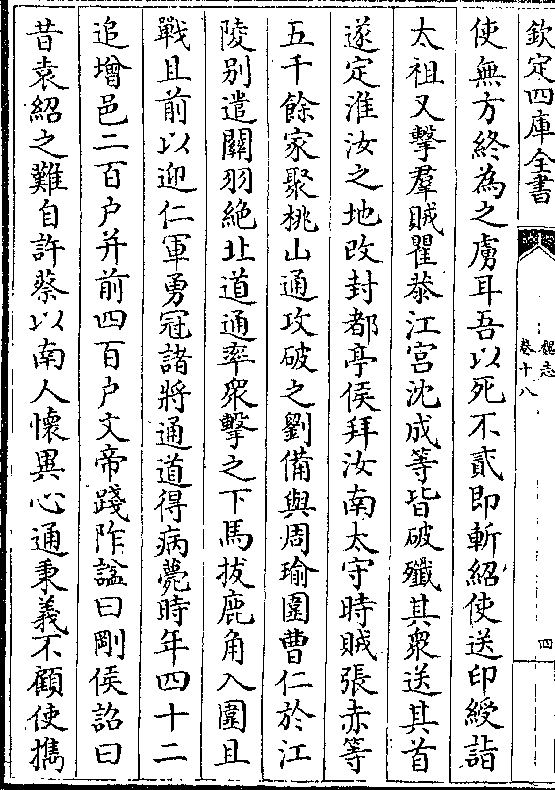 欽定四庫全書
魏志
卷十八
四
使無方終為之虜耳吾以死不貳即斬紹使送印綬詣
太祖又擊羣賊瞿恭江宮沈成等皆破殲其衆送其首
遂定淮汝之地改封都亭侯拜汝南太守時賊張赤等
五千餘家聚桃山通攻破之劉備與周瑜圍曹仁於江
陵别遣關羽絶北道通率衆擊之下馬拔鹿角入圍且
戰且前以迎仁軍勇冠諸將通道得病薨時年四十二
追增邑二百户并前四百户文帝踐阼諡曰剛侯詔曰
昔袁紹之難自許蔡以南人懷異心通秉義不顧使㩗